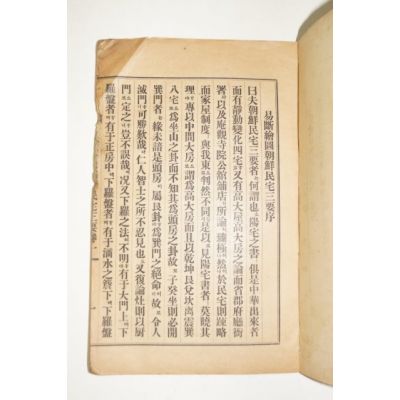 易斷繪圖朝鮮民宅三要序
曰夫朝鮮民宅三要者何謂也陽宅之書俱是中華出來者
而有靜動變化四宅又有高大屋高大房之論而省郡府廳衙
署以及庵觀寺院公館舖店所論極於民宅則踈略
而家屋制度與我東判然不同是以見陽宅書者莫曉其
理專以中間大房謂爲高大房而且以乾坤艮兌坎离震巽
八宅爲坐山之卦而不知其爲頭房之卦故子癸坐則必開
巽門者緣未諳是頭房屬艮卦爲巽門之絕命故令人
滅門可勝歎哉仁人智士之所不忍見也又復論灶則以厨
門定之豈不誤哉况又下羅之法不明有于大門上下
羅盤者有于正房中下羅盤者有于滴水之簷下下羅盤